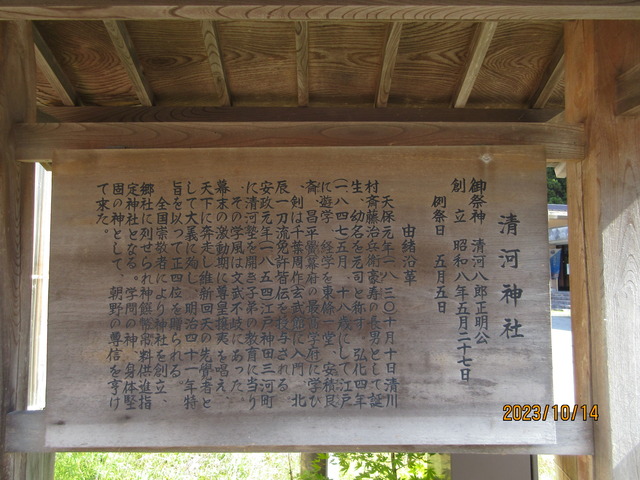 清河神社
御祭神　清河八郎正明公
創　立　昭和八年五月二十七日
例祭日　五月五日
由緒沿革
天保元年（一八三〇）十月十日清川
村斎藤治兵衛豪寿の長男として誕
生、幼名を元司と称す。弘化四年
（一八四七）五月　十八歳にして江戸
に遊学、経学を東條一堂、安積艮
斎、昌平黌（幕府の最高学府）に学び
、剣は千葉周作玄武館に入門　北
辰一刀流免許皆伝を授与される
安政元年（一八五四）江戸神田三河町
に清河塾を開き子弟の教育に当り
、その学風は文武不岐にあった。
幕末の激動期に尊皇攘夷を唱え
天下に奔走し維新回天の先覚者と
して大義に殉じ、明治四十一年特
旨を以って正四位を贈られる。
全国崇敬者により神社を創立、
郷社に列せられ神饌幣帛料供進指
定神社となる。学問の神、身体堅
固の神として、朝野の尊信を享け
て来た。
2023/10/14